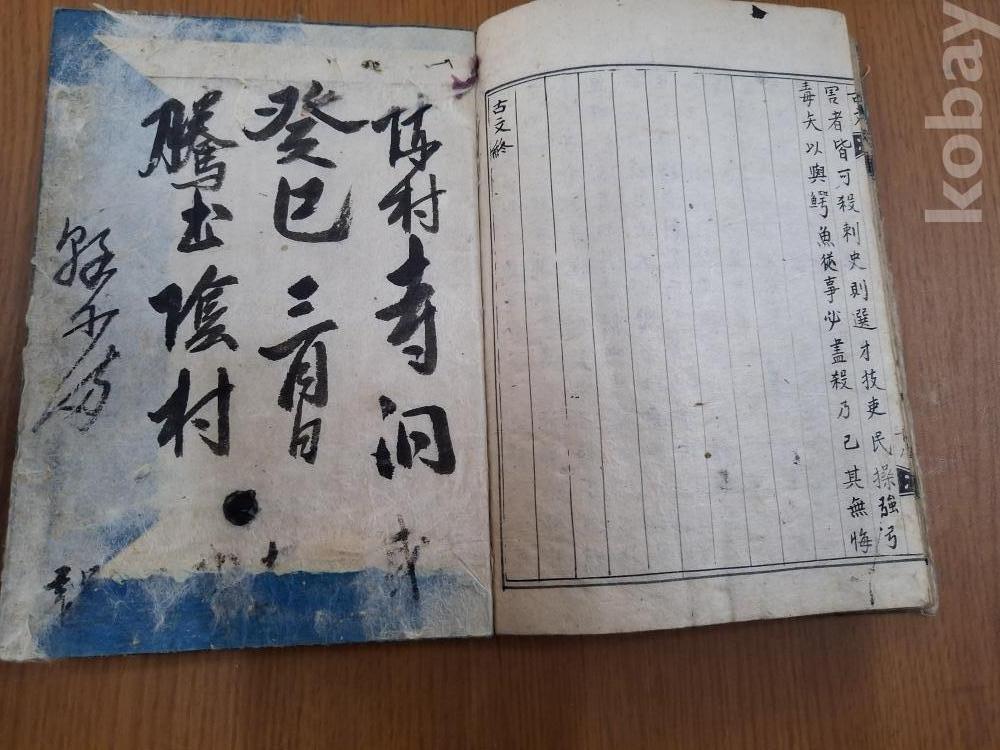 害者皆可殺刺史則選才技吏民操強弓
毒矢以與鰐魚從事必盡殺乃已其無悔
古文終
陈村寺洞
癸巳三月日
騰 陰村
kobay